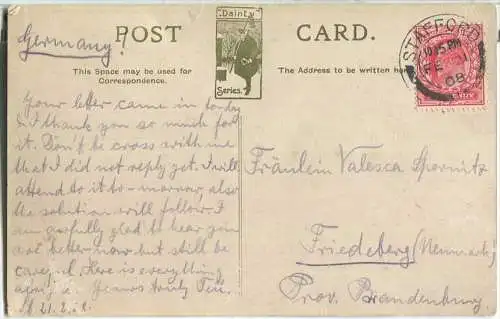 Germany!
POST CARD.
Dainty
Series.
This Space may be used for
Correspondence.
The Address to be written
STAFFORD
10.15 PM
FE 21
08
Your letter came in to day
& I thank you so much for
it. Don't be cross with me
that I did not reply yet. I will
attend to it to-morrow, also
the solution will follow. I
am awfully glad to hear you
are better now but still be
careful. Here is everything
Yours truly
21.2.
Fräulein Valesca Spornitz
Friedeberg (Neumark)
Prov. Brandenburg